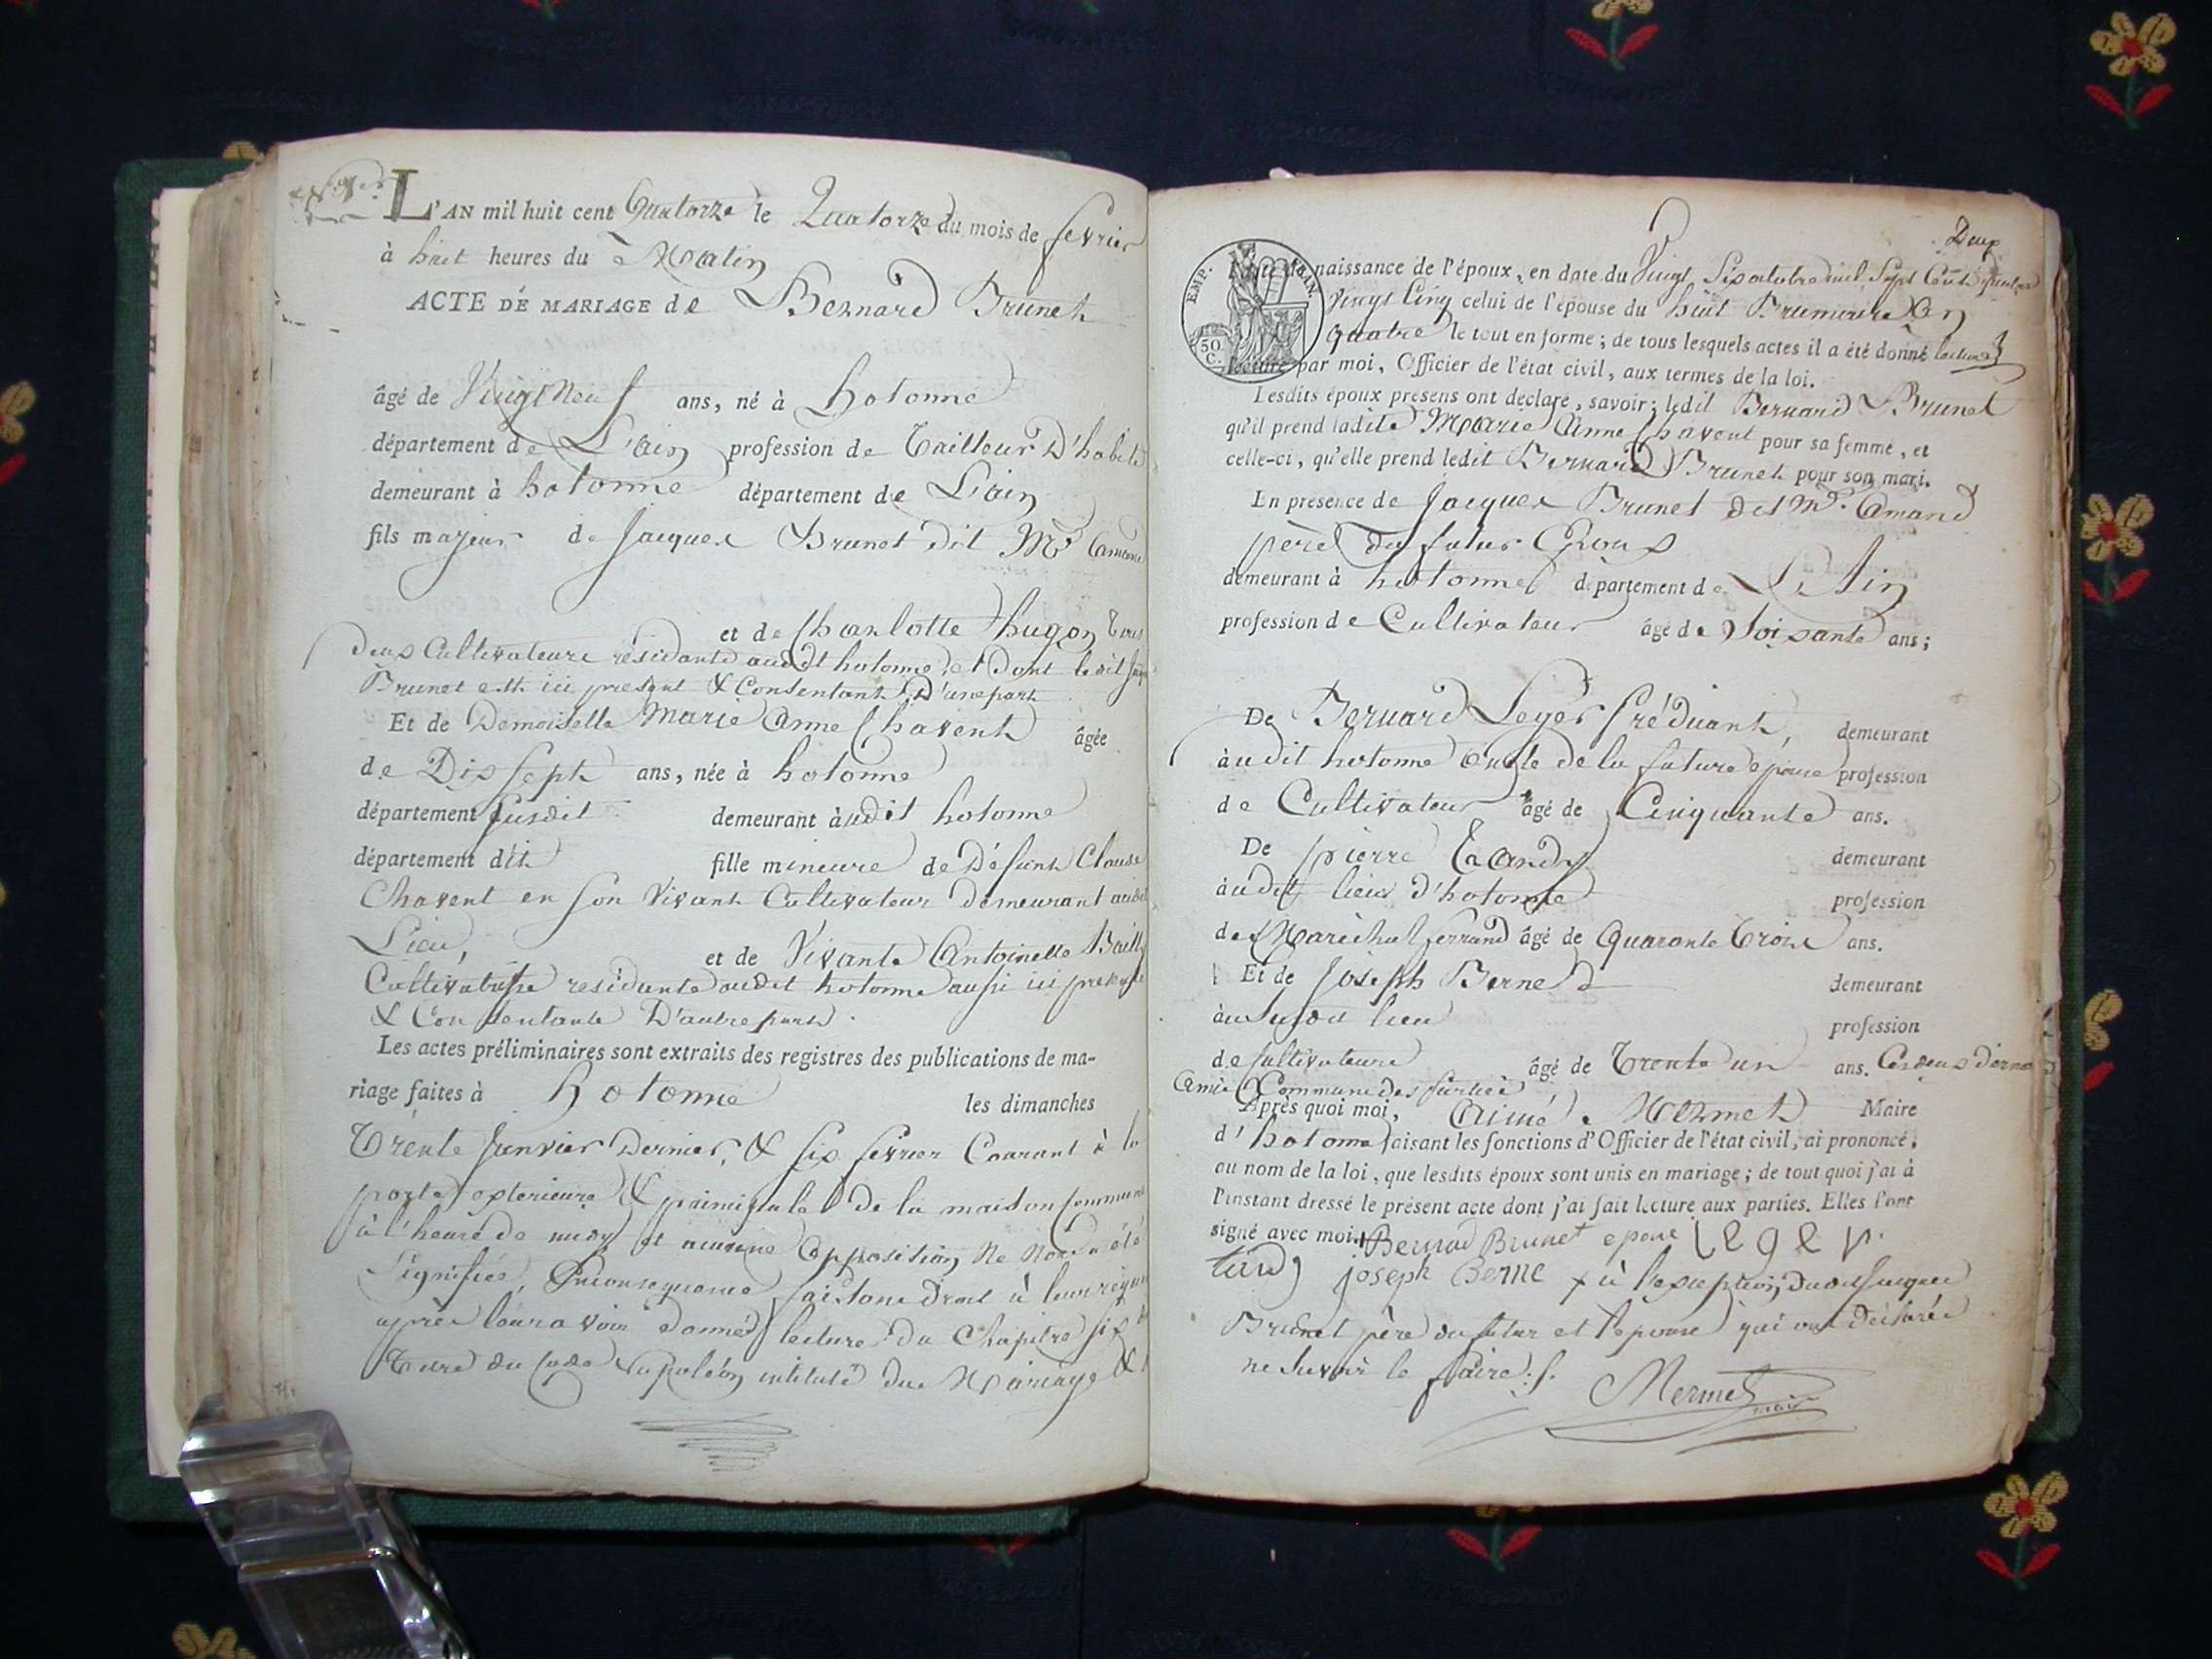 L'AN mil huit cent Quatorze le Quatorze du mois de fevrier
à huit heures du Matin
ACTE DE MARIAGE de Bernard Brunet
âgé de Vingt Neuf ans, né à hotonne
département de L'ain profession de Tailleur D'habits
demeurant à hotonne département de L'ain
fils majeur de Jacques Brunet dit Md Amand
et de Charlotte hugon tous
deux Cultivateurs résidants audit hotonne, et Dont ledit
Brunet est ici présent & Consentant D'une part
Et de Demoiselle Marie Anne Chavent âgée
de Dix Sept ans, née à hotonne
département susdit demeurant audit hotonne
département dit fille mineure de Défunt Claude
Chavent en son Vivant Cultivateur demeurant audit
Lieu, et de Vivante Antoinette Bailly
Cultivatrice residante audit hotonne aussi ici presente
& Consentante D'autre part.
Les actes préliminaires sont extraits des registres des publications de ma-
riage faites à hotonne les dimanches
Trente Janvier Dernier, & six fevrier Courant à la
porte exterieure & principale de la maison Commune
à l'heure de midy et aucune Opposition Ne Nous a été
Signifiée, Enconsequence faisant droit à leur
après leur avoir donné lecture du Chapitre six
du Code Napoléon intitulé du Mariage &
Deux
EMP. 50 C.
naissance de l'époux, en date du Vingt Six octobre mil Sept Cent quatre
Vingt Cinq celui de l'épouse du huit Brumaire An
quatre le tout en forme ; de tous lesquels actes il a été donné lecture
lecture par moi, Officier de l'état civil, aux termes de la loi.
Lesdits époux présens ont déclaré, savoir : ledit Bernard Brunet
qu'il prend ladite Marie Anne Chavent pour sa femme, et
celle-ci, qu'elle prend ledit Bernard Brunet pour son mari.
En présence de Jacques Brunet dit Md. Amand
père du futur Epoux
demeurant à hotonne département de L'Ain
profession de Cultivateur âgé de Soixante ans ;
De Bernard Leger Tréduant, demeurant
audit hotonne Oncle de la future épouse profession
de Cultivateur âgé de Cinquante ans.
De pierre demeurant
audit lieu d'hotonne profession
de Maréchal ferrand âgé de Quarante Trois ans.
Et de Joseph Berne demeurant
au susdit lieu profession
de Cultivateur âgé de Trente un ans. Ces deux derniers
Amis Communs des parties
Après quoi moi, Aimé Mermet Maire
d'hotonne faisant les fonctions d'Officier de l'état civil, ai prononcé,
au nom de la loi, que lesdits époux sont unis en mariage ; de tout quoi j'ai à
l'instant dressé le présent acte dont j'ai fait lecture aux parties. Elles l'ont
signé avec moi. Bernad Brunet epoux
joseph Berne à l'exception dudit Jacques
Brunet père du futur et l'epouse qui ont déclarée
ne Savoir le faire.
Mermet maire